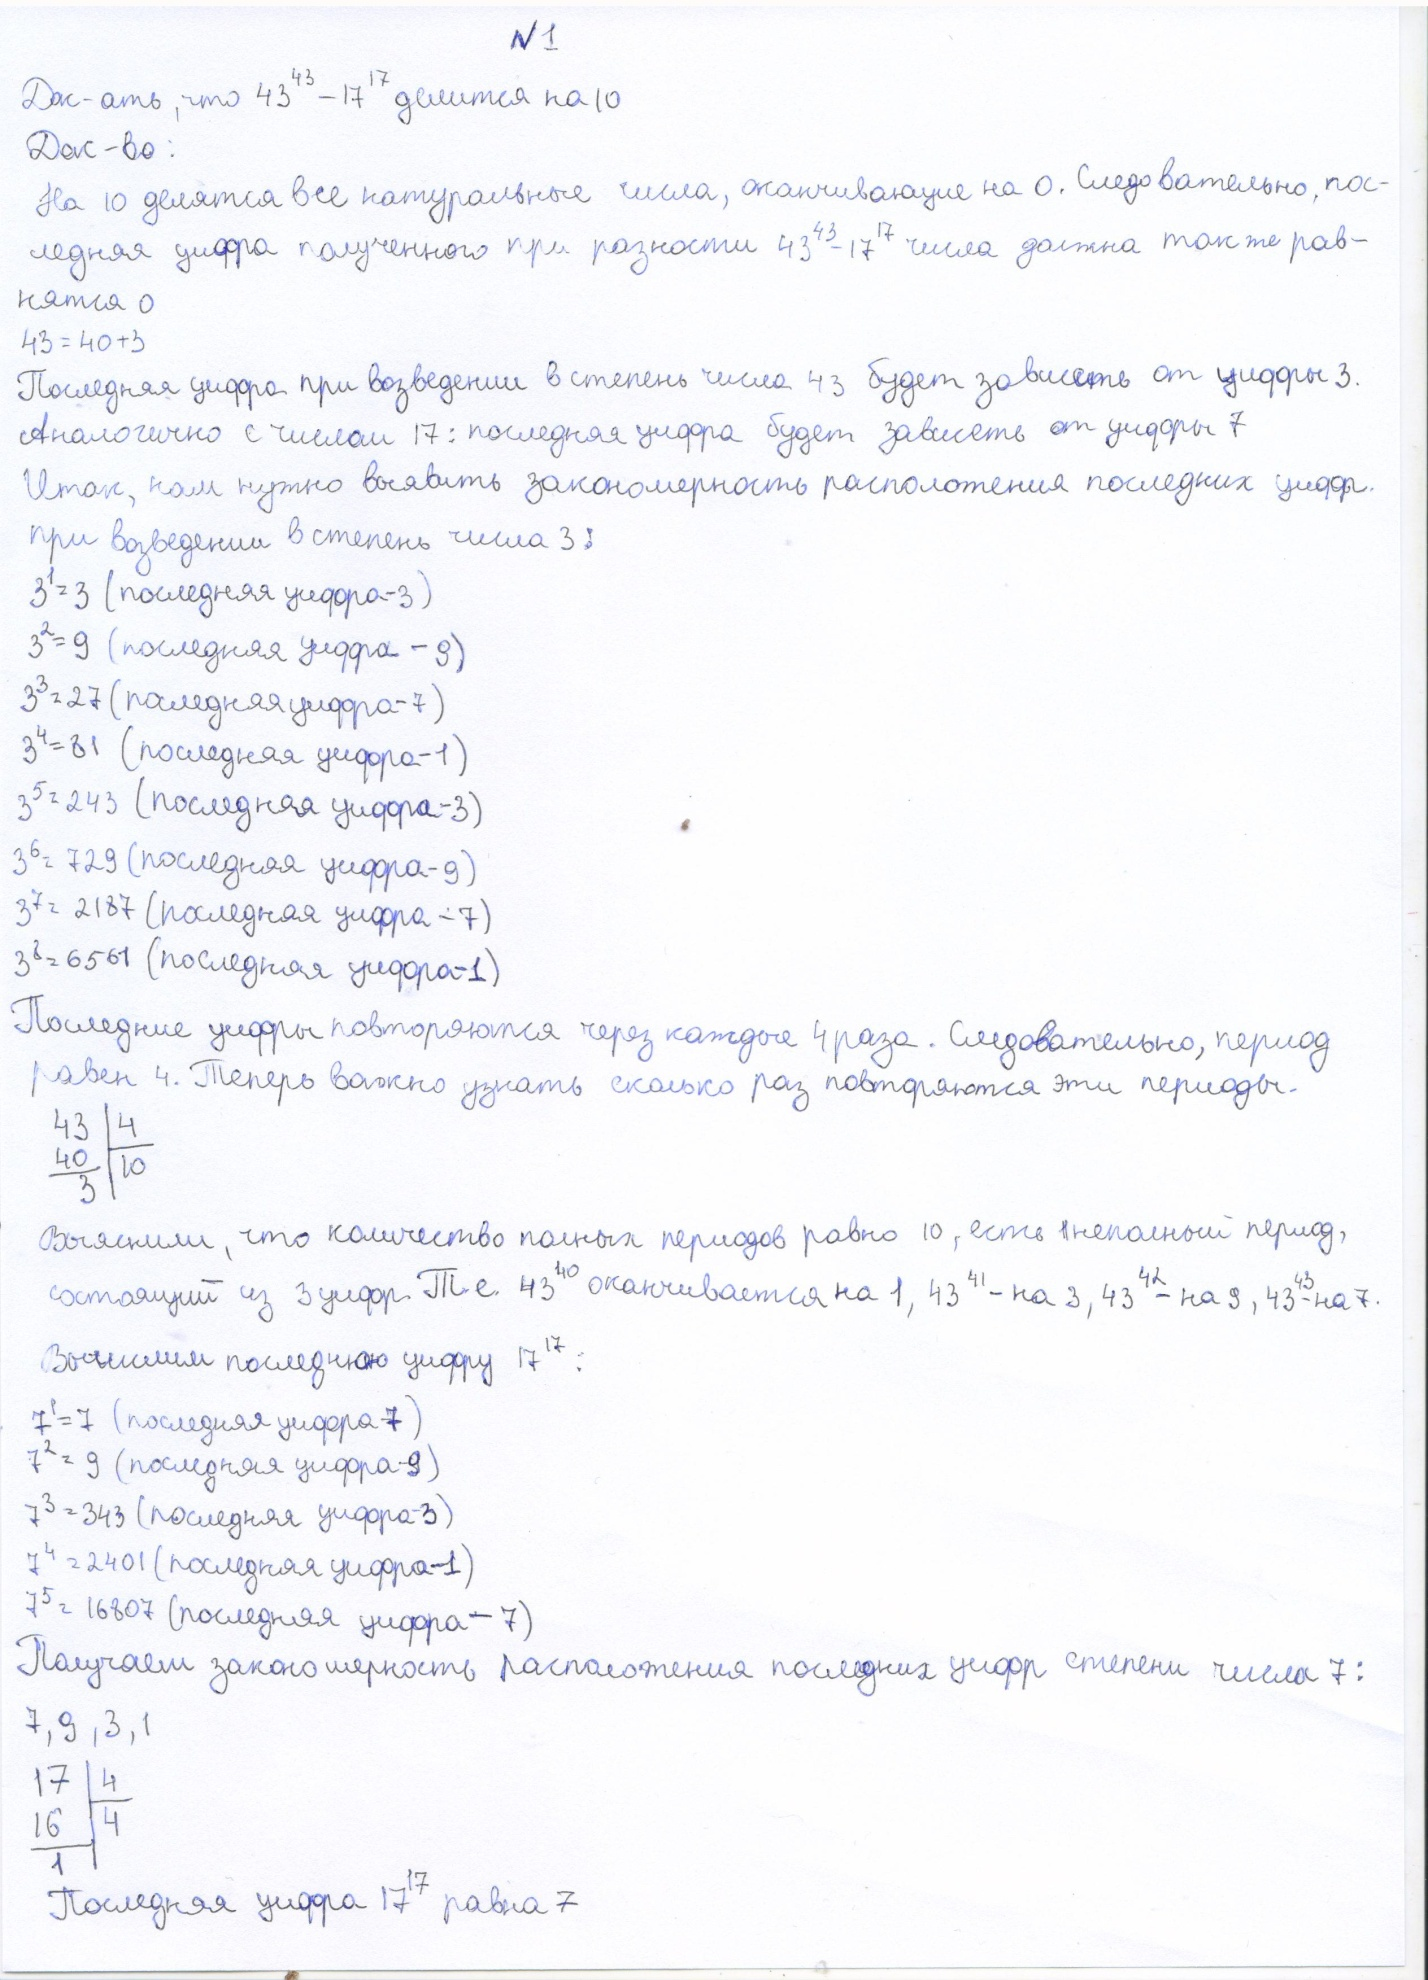 N1
Док-ать, что 43^43 - 17^17 делится на 10
Док-во:
На 10 делятся все натуральные числа, оканчивающие на 0. Следовательно, пос-
ледняя цифра полученного при разности 43^43 - 17^17 числа должна также рав-
нятся 0
43 = 40+3
Последняя цифра при возведении в степень числа 43 будет зависеть от цифры 3.
Аналогично с числом 17: последняя цифра будет зависеть от цифры 7
Итак, нам нужно выявить закономерность расположения последних цифр
при возведении в степень числа 3:
3^1 = 3 (последняя цифра-3)
3^2 = 9 (последняя цифра - 9)
3^3 = 27 (последняя цифра-7)
3^4 = 81 (последняя цифра-1)
3^5 = 243 (последняя цифра-3)
3^6 = 729 (последняя цифра-9)
3^7 = 2187 (последняя цифра -7)
3^8 = 6561 (последняя цифра-1)
Последние цифры повторяются через каждые 4 раза. Следовательно, период
равен 4. Теперь важно узнать сколько раз повторяются эти периоды.
43 | 4
40 | 10
3
Выяснили, что количество полных периодов равно 10, есть 1 неполный период,
состоящий из 3 цифр. Т.е. 43^40 оканчивается на 1, 43^41 - на 3, 43^42 - на 9, 43^43 - на 7.
Вычислим последнюю цифру 17^17:
7^1 = 7 (последняя цифра-7)
7^2 = 9 (последняя цифра-9)
7^3 = 343 (последняя цифра-3)
7^4 = 2401 (последняя цифра-1)
7^5 = 16807 (последняя цифра - 7)
Получаем закономерность расположения последних цифр степени числа 7:
7, 9, 3, 1
17 | 4
16 | 4
1
Последняя цифра 17^17 равна 7